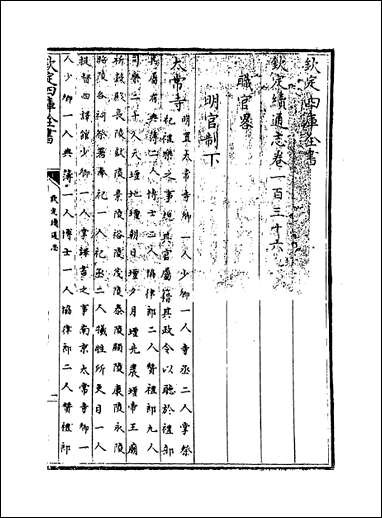 欽定四庫全書
欽定續通志卷一百三十六
職官畧
明官制下
太常寺
明置太常寺卿一人少卿一人寺丞二人掌祭
祀禮樂之事總其官屬籍其政令以聽於禮部
其屬有典簿二人博士二人協律郎二人贊禮郎九人
司樂二十人天壇地壇朝日壇夕月壇先農壇帝王廟
祈穀殿長陵獻陵景陵裕陵茂陵泰陵顯陵康陵永陵
昭陵各祠祭署奉祀一人祀丞二人犧牲所吏目一人
提督四譯館少卿一人掌譯書之事南京太常寺卿一
人少卿一人典簿一人博士一人協律郎二人贊禮郎
欽定四庫全書
欽定續通志
一